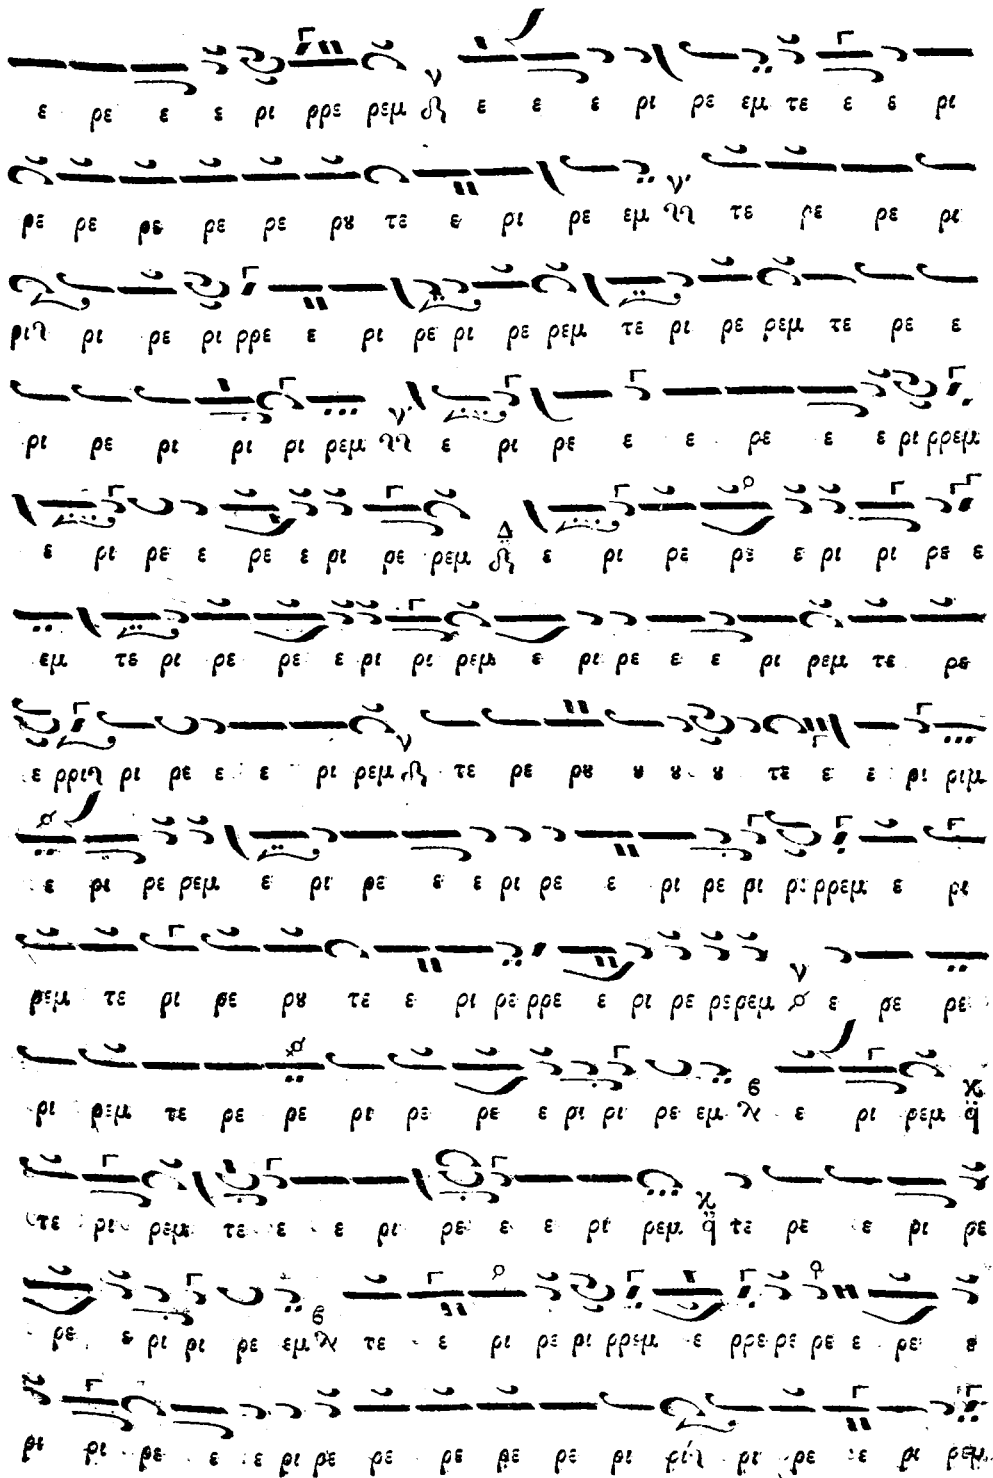 ε ρε ε ε ρι ρρε ρεμ ε ε ε ρι ρε εμ τε ε ε ρι
ρε ρε ρε ρε ρε ρȣ τε ε ρι ρε εμ τε ρε ρε ρι
ρι ρι ρε ρι ρρε ε ρι ρε ρι ρε ρεμ τε ρι ρε ρεμ τε ρε ε
ρι ρε ρι ρι ρι ρεμ ε ρι ρε ε ε ρε ε ε ρι ρρεμ
ε ρι ρε ε ρε ε ρι ρε ρεμ ε ρι ρε ρε ε ρι ρι ρε ε
εμ τε ρι ρε ρε ε ρι ρι ρεμ ε ρι ρε ε ε ρι ρεμ τε ρε
ε ρρι ρι ρε ε ε ρι ρεμ τε ρε ρȣ ȣ ȣ ȣ τε ε ε ρι ριμ
ε ρι ρε ρεμ ε ρι ρε ε ε ρι ρε ε ρι ρε ρι ρι ρρεμ ε ρι
ρεμ τε ρι ρε ρȣ τε ε ρι ρε ρρε ε ρι ρε ρε ρεμ ε ρε ρε
ρι ρεμ τε ρε ρε ρι ρε ρε ε ρι ρι ρε εμ ε ρι ρεμ
τε ρι ρεμ τε ε ε ρι ρε ε ε ρι ρεμ τε ρε ε ρι ρε
ρε ε ρι ρι ρε εμ τε ε ε ρι ρε ρι ρρεμ ε ρρε ρε ρε ε ρε ε
ρι ρι ρε ε ε ρι ρε ρε ρε ρε ρε ρι ρι ρι ρε ε ρι ρεμ